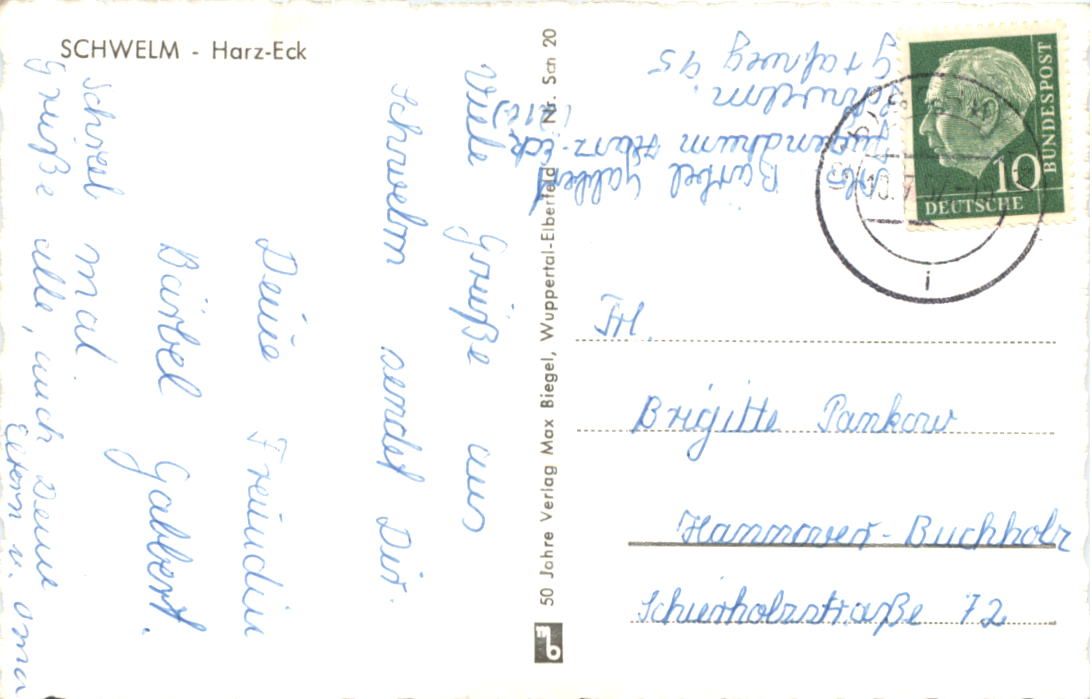 SCHWELM - Harz-Eck
Viele Grüße aus
Schwelm sendet Dir
Deine Freundin
Bärbel Gabbert.
Schreib mal
Grüße alle, auch Deine
Eltern u. Oma
50 Jahre Verlag Max Biegel, Wuppertal-Elberfeld, Nr. Sch 20
mb
Bärbel Gabbert
Jugendheim Harz-Eck
Schwelm.
95
DEUTSCHE
BUNDESPOST
10
i
Frl.
Brigitte Pankow
Hannover-Buchholz
Schierholzstraße 72